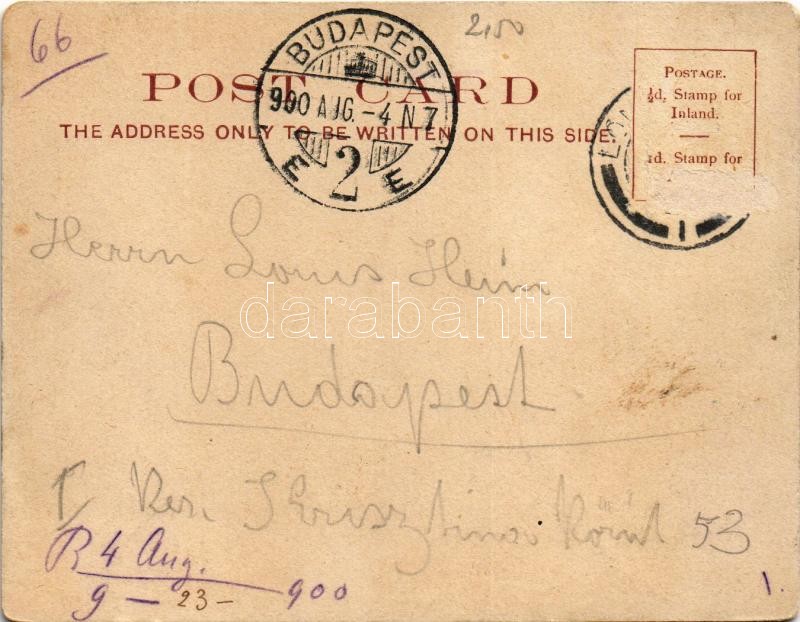 66
2,50
POST CARD
THE ADDRESS ONLY TO BE WRITTEN ON THIS SIDE.
BUDAPEST
900 AUG. -4 N 7
E 2 E
POSTAGE.
½d. Stamp for
Inland.
1d. Stamp for
1
Herrn Louis Heim
darabanth
Budapest
I Ker. Krisztina Körút 53
R 4 Aug.
9 - 23 - 900
1.